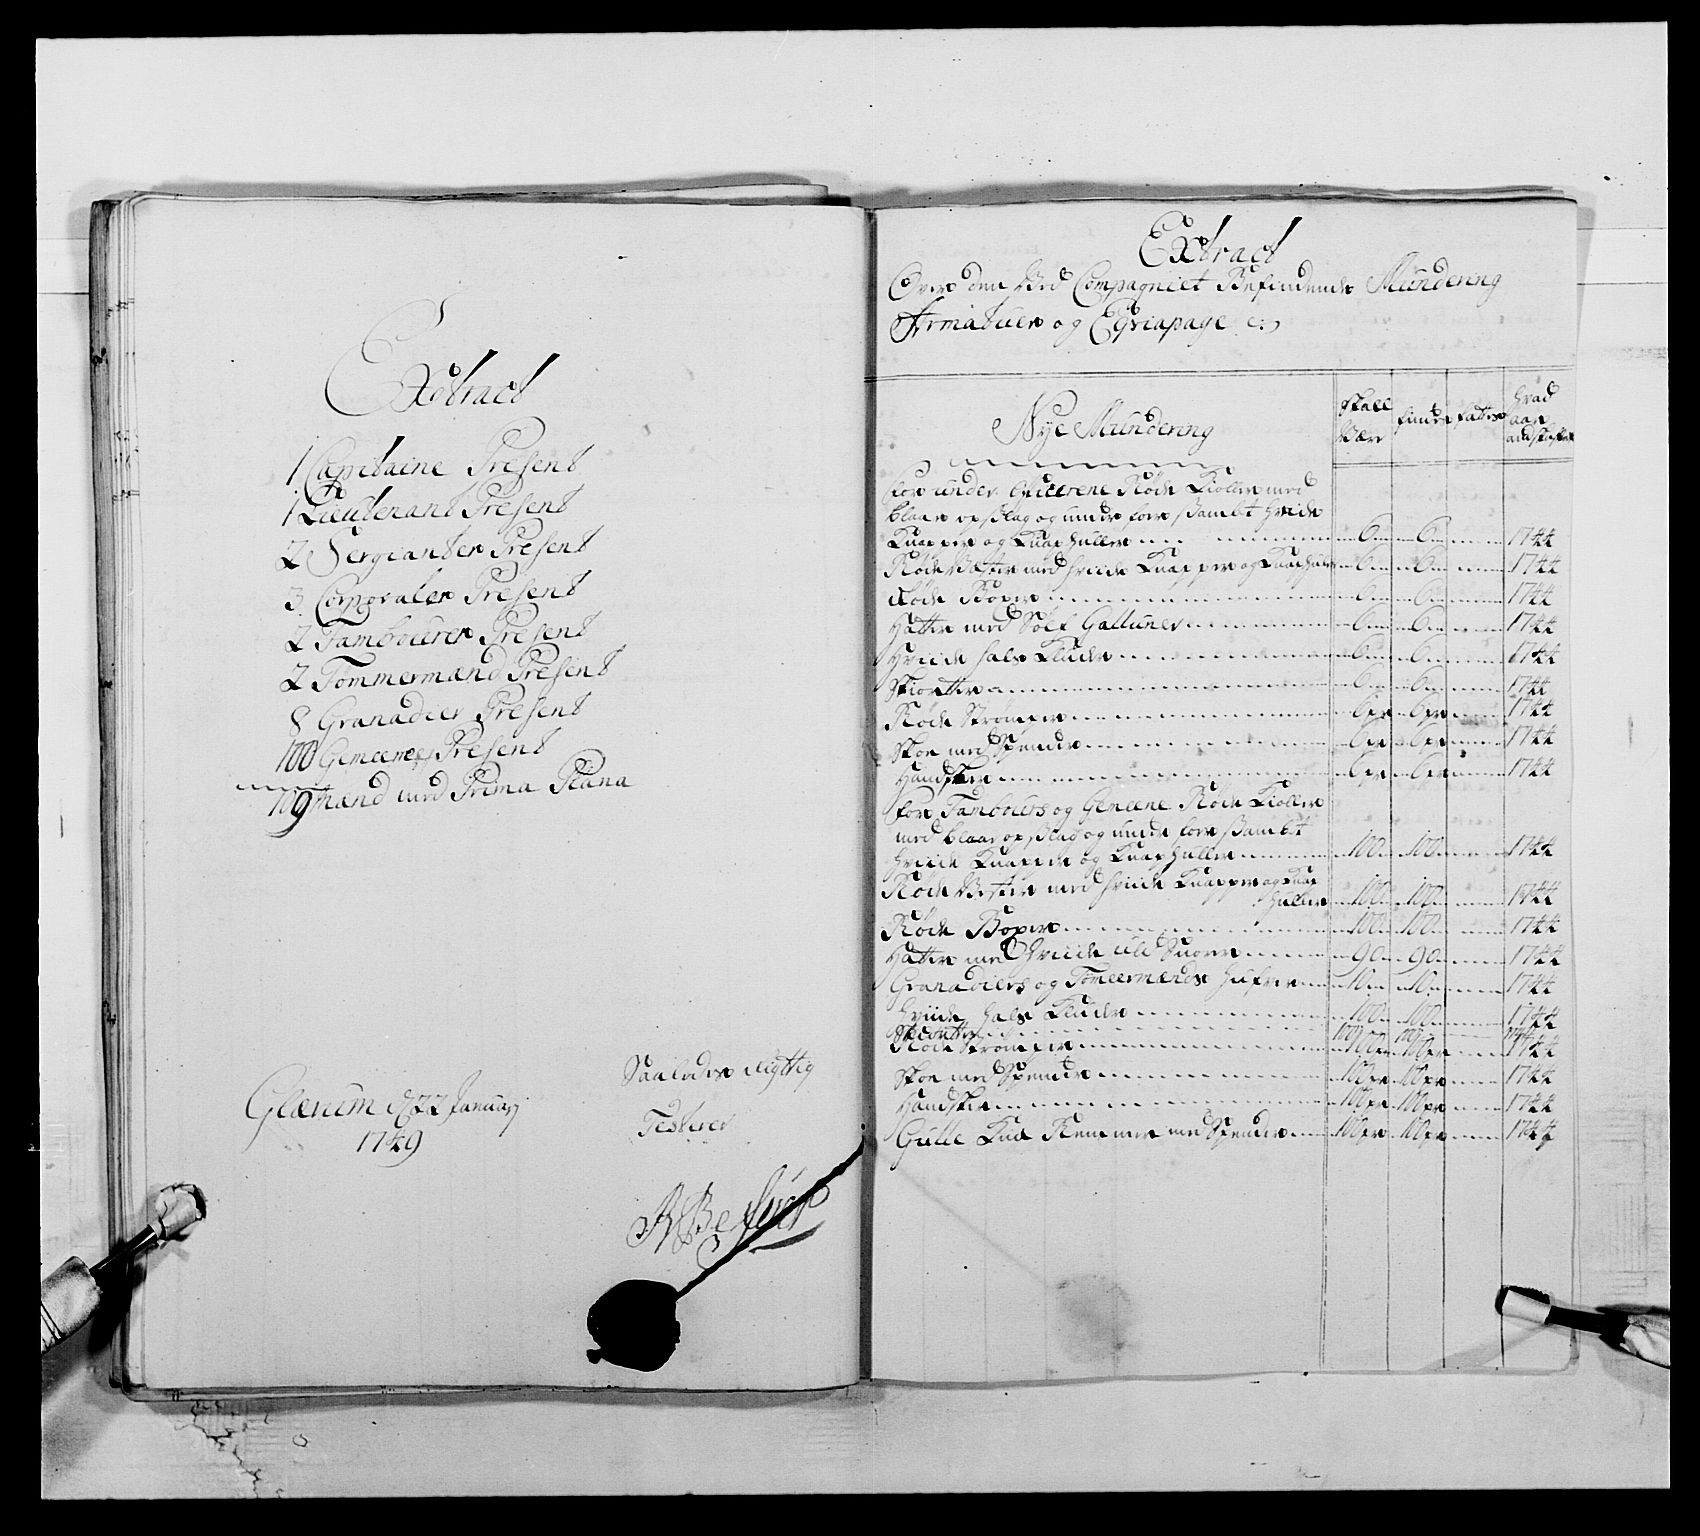 Extract
1 Capitaine Present
1 Lieutenant Present
2 Sergianter Present
3 Corporaler Present
2 Tambourer Present
2 Tømmermænd Present
8 Granadeer Present
100 Gemeene Present
109 Mænd med Prima Plana
Saaledes rigttig
Glærum d 22 Januarij
1749
Testerer
Extract
Over den Ved Compagniet Befindende Mundering
Armatuer og Eqviapage
Nye Mundering
Skall Være
findes
fattes
hvad aar
for under Officerene Røde Kioller med
blaae opslag og under foer sambt hvide
Knapper og Knaphuller 6 6 1744
Røde Vester med hviide Knapper og Knaphuller 6 6 1744
Røde Boxer 6 6 1744
Hatter med Sølf Galluner 6 6 1744
Hviide hals Klude 6 6 1744
Skiorter 6 6 1744
Røde Strømper 6 pr 6 pr 1744
Skoe med Spender 6 pr 6 pr 1744
Handsker 6 pr 6 pr 1744
for Tambours og Gemeene Røde Kioller
med blaae opslag og under foer sambt
Hviide Knapper og Knaphuller 100 100 1744
Røde Vester med hviide Knapper og Knap
huller 100 100 1744
Røde Boxer 100 100 1744
Hatter med Hviide uld Snorer 90 90 1744
Granadiers og Tømermænds Huer 10 10 1744
Hviide Hals Klude 100 100 1744
Skiorter 100 100 1744
Røde Strømper 100 pr 100 pr 1744
Skoe med Spender 100 pr 100 pr 1744
Handsker 100 pr 100 pr 1744
Gulle Knæ Remmer med Spender 100 pr 100 pr 1744